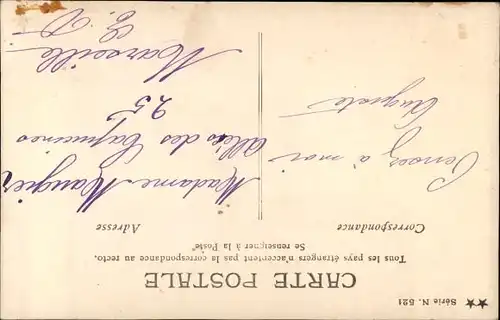 ★★ Série N. 521
CARTE POSTALE
Tous les pays étrangers n'acceptent pas la correspondance au recto.
Se renseigner à la Poste
Correspondance
Adresse
Pensez à moi
Auguste
Madame Maugier
Allées des Capucines
25
Marseille